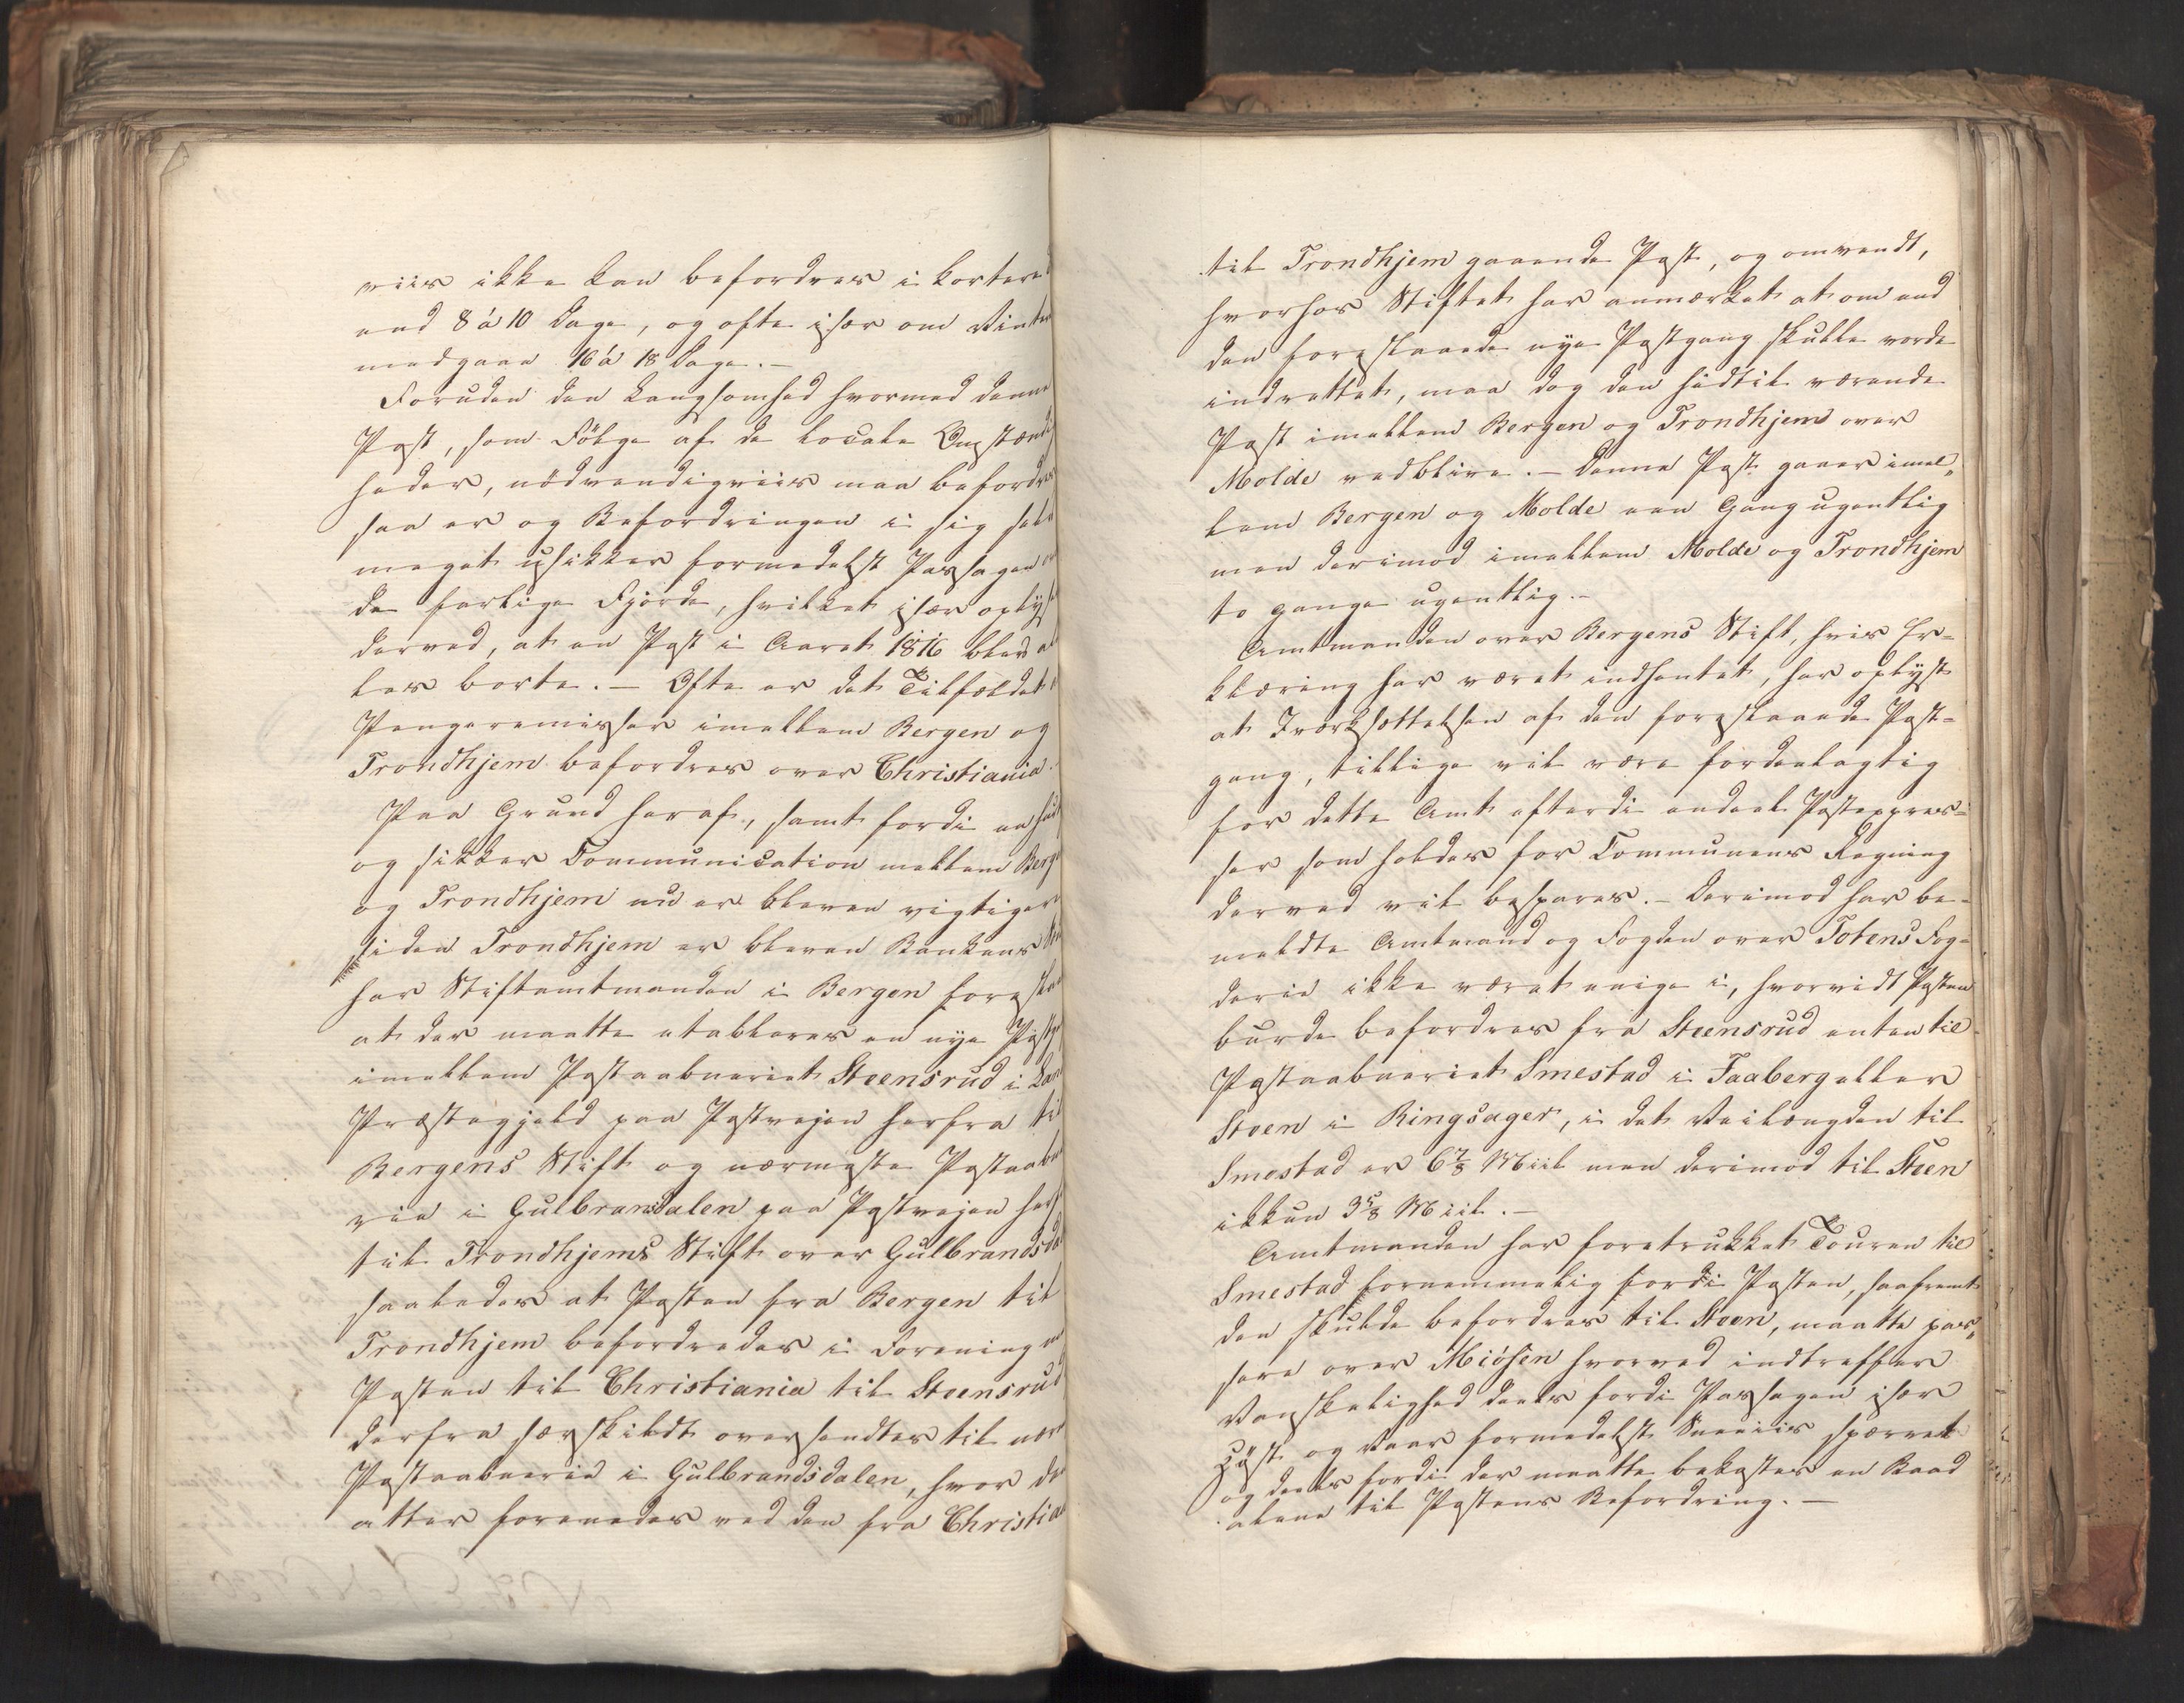 viis ikke kan befordres i kortere
end 8 à 10 Dage, og ofte især om Vinter
medgaae 16 à 18 Dage. —
Foruden den Langsomhed hvormed denne
Post, som Fölge af de locale Omstændi
heder, nödvendigviis maa befordres
saa er og Befordringen i sig selv
meget usikker formedelst Passagen
de farlige Fjorde, hvilket især oplyses
derved, at en Post i Aaret 1816 blev
les borte. — Ofte er det Tilfældet
Pengeremisser imellem Bergen og
Trondhjem befordres over Christiania.
Paa Grund heraf, samt fordi en
og sikker Communication mellem Berge
og Trondhjem nu er bleven vigtigere
siden Trondhjem er bleven Bankens
har Stiftamtmanden i Bergen foreslaa
at der maatte etableres en nye Postg
imellem Postaabneriet Steensrud i Land
Præstegjeld paa Postvejen herfra til
Bergens Stift og nærmeste Postaabne
rie i Gulbransdalen paa Postvejen herf
til Trondhjems Stift over Gulbrandsdal
saaledes at Posten fra Bergen til
Trondhjem befordredes i Forening m
Posten til Christiania til Steensrud
derfra særskildt oversendtes til nærm
Postaabnerie i Gulbrandsdalen, hvor d
atter forenedes ved den fra Christian
til Trondhjem gaaende Post, og omvendt,
hvorhos Stiftet har anmærket at om end
den foreslaaede nye Postgang skulle vorde
indrettet, maa dog den hidtil værende
Post imellem Bergen og Trondhjem over
Molde vedblive. — Denne Post gaaer imel„
lem Bergen og Molde een Gang ugentlig
men derimod imellem Molde og Trondhjem
to gange ugentlig. —
Amtmanden over Bergens Stift, hvis Er=
klæring har været indhentet, har oplyst
at Iværksættelsen af den foreslaaede Post=
gang, tillige vil være fordeelagtig
for dette Amt efterdi endeel Postexpres=
ser som holdes for Communens Regning
derved vil bespares. — Derimod har be=
meldte Amtmand og Fogden over Totens Fog=
derie ikke været enige i, hvorvidt Posten
burde befordres fra Steensrud enten til
Postaabneriet Smestad i Faaberg eller
Steen i Ringsager, i det Veilængden til
Smestad er 6⅞ Miil men derimod til Steen
ikkun 3⅝ Miil. —
Amtmanden har foretrukket Touren til
Smestad fornemmelig fordi Posten, saafremt
den skulde befordres til Steen, maatte pas„
sere over Miösen hvorved indtreffer
Vanskelighed deels fordi Passagen især
Höst og Vaar formedelst Sneeiis spærret
og deels fordi der maatte bekostes en Baad
alene til Postens Befordring. —